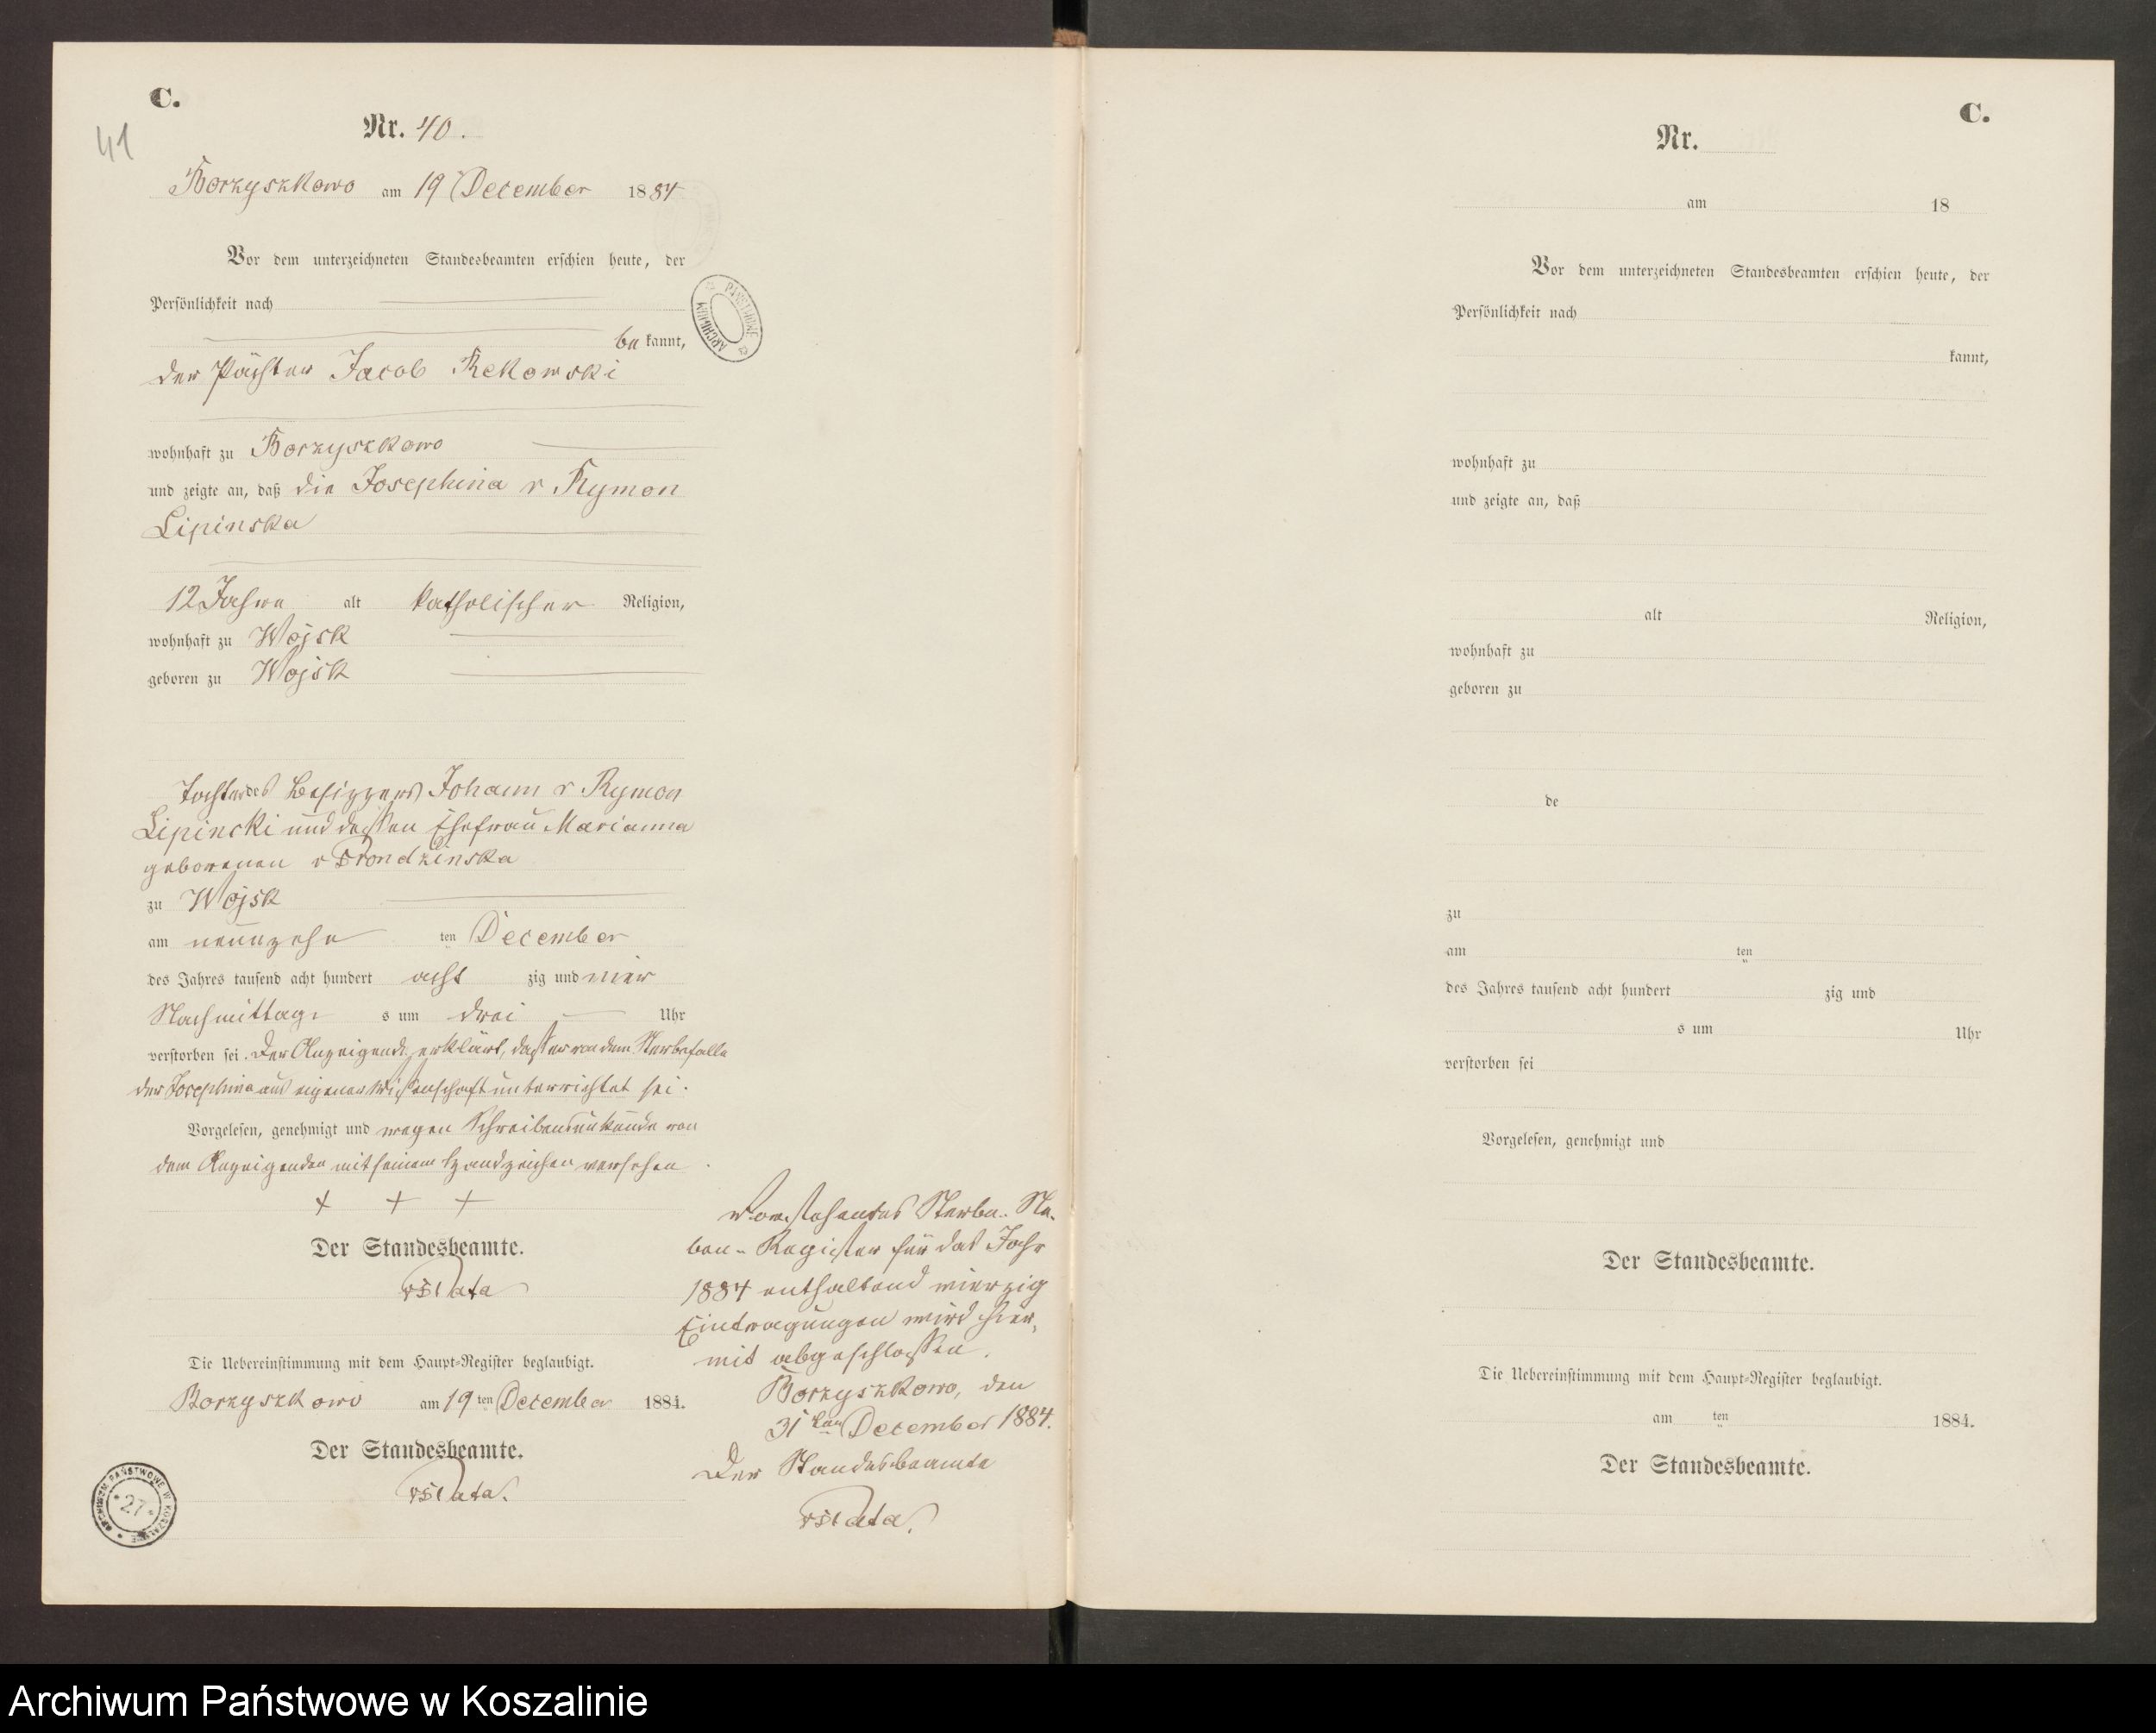 C.
41
Nr. 40.
Borzyszkowo am 19 December 1884
Vor dem unterzeichneten Standesbeamten erschien heute, der
Persönlichkeit nach
be kannt,
der Pächter Jacob Rekowski
wohnhaft zu Borzyszkowo
und zeigte an, daß die Josephina v Rymon
Lipinska
12 Jahre alt katholischer Religion,
wohnhaft zu Wojsk
geboren zu Wojsk
Tochter des Besitzers Johann v Rymon
Lipincki und dessen Ehefrau Marianna
geborenen v Prondzinska
zu Wojsk
am neunzehn ten December
des Jahres tausend acht hundert acht zig und vier
Nachmittag s um drei Uhr
verstorben sei. Der Anzeigende erklärt, dass er von dem Sterbefalle
der Josephina aus eigener Wissenschaft unterrichtet sei.
Vorgelesen, genehmigt und wegen Schreibensunkunde von
dem Anzeigenden mit seinem Handzeichen versehen
+ + +
Der Standesbeamte.
Die Uebereinstimmung mit dem Haupt-Register beglaubigt.
Borzyszkowo am 19 ten December 1884.
Der Standesbeamte.
Vorstehendes Sterbe-Ne-
ben-Register für das Jahr
1884 enthaltend vierzig
Eintragungen wird hier-
mit abgeschlossen.
Borzyszkowo, den
31 ten December 1884.
Der Standesbeamte
ARCHIWUM PAŃSTWOWE W KOSZALINIE
27
C.
Nr.
am 18
Vor dem unterzeichneten Standesbeamten erschien heute, der
Persönlichkeit nach
kannt,
wohnhaft zu
und zeigte an, daß
alt Religion,
wohnhaft zu
geboren zu
de
zu
am ten
des Jahres tausend acht hundert zig und
s um Uhr
verstorben sei
Vorgelesen, genehmigt und
Der Standesbeamte.
Die Uebereinstimmung mit dem Haupt-Register beglaubigt.
am ten 1884.
Der Standesbeamte.
Archiwum Państwowe w Koszalinie